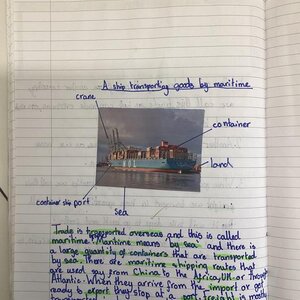 A ship transporting goods by maritime
crane
container
land
container ship port
sea
Trade is transported overseas and this is called
maritime. Maritime means by sea and there is
a large quantity of containers that are transported
by sea. There are maritime shipping routes that
are used say from China to the Africa, UK or
Atlantic. When they arrive from the import or get
ready to export they stop at a port. Freight is mostly